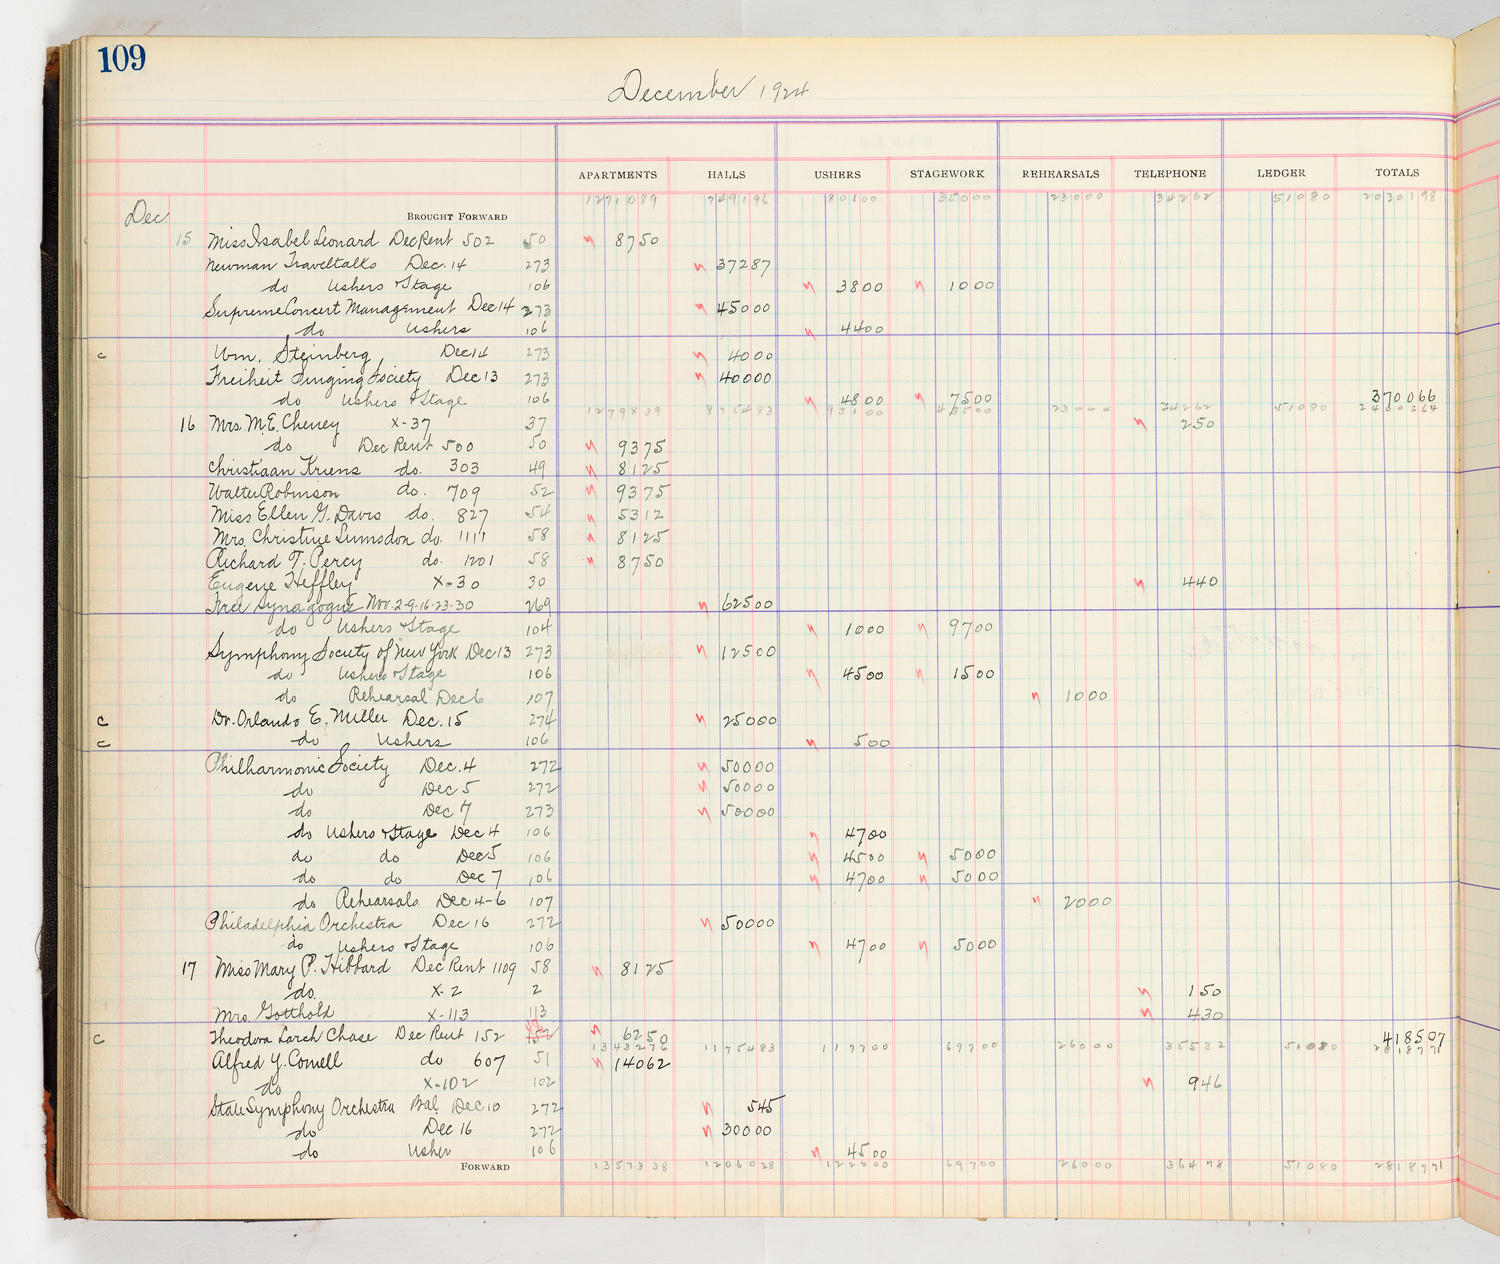 109
December 1924
APARTMENTS HALLS USHERS STAGEWORK REHEARSALS TELEPHONE LEDGER TOTALS
1271089 749196 80100 35000 23000 34262 51080 2030198
Dec. BROUGHT FORWARD
15 Miss Isabel Leonard Dec Rent 502 50 8750
Newman Traveltalks Dec. 14 273 37287
do Ushers & Stage 106 3800 1000
Supreme Concert Management Dec 14 273 45000
do Ushers 106 4400
c Wm. Steinberg, Dec 14 273 4000
Freiheit Singing Society Dec 13 273 40000
do Ushers & Stage 106 4800 7500 370066
1279839 875483 93100 43500 23000 34262 51080 2400264
16 Mrs. M.E. Cheney X-37 37 250
do Dec Rent 500 50 9375
Christiaan Kriens do. 303 49 8125
Walter Robinson do. 709 52 9375
Miss Ellen G. Davis do. 827 54 5312
Mrs. Christine Lumsdon do. 1111 58 8125
Richard T. Percy do. 1201 58 8750
Eugene Heffley X-30 30 440
Free Synagogue Nov. 2-9-16-23-30 269 62500
do Ushers & Stage 104 1000 9700
Symphony Society of New York Dec 13 273 12500
do Ushers & Stage 106 4500 1500
do Rehearsal Dec 6 107 1000
c Dr. Orlando E. Miller Dec. 15 274 25000
c do Ushers 106 500
Philharmonic Society Dec. 4 272 50000
do Dec 5 272 50000
do Dec 7 273 50000
do Ushers & Stage Dec 4 106 4700
do do Dec 5 106 4500 5000
do do Dec 7 106 4700 5000
do Rehearsals Dec 4-6 107 2000
Philadelphia Orchestra Dec 16 272 50000
do Ushers & Stage 106 4700 5000
17 Miss Mary P. Hibbard Dec Rent 1109 58 8125
do. X-2 2 150
Mrs. Gotthold X-113 113 430
c Theodora Larch Chase Dec Rent 152 152 6250 418507
1343276 1175483 117700 69700 26000 35532 51080 2818771
Alfred Y. Cornell do 607 51 14062
do X-102 102 946
State Symphony Orchestra Bal. Dec 10 272 545
do Dec 16 272 30000
do Usher 106 4500
FORWARD 1357338 1206028 122200 69700 26000 36478 51080 2818771